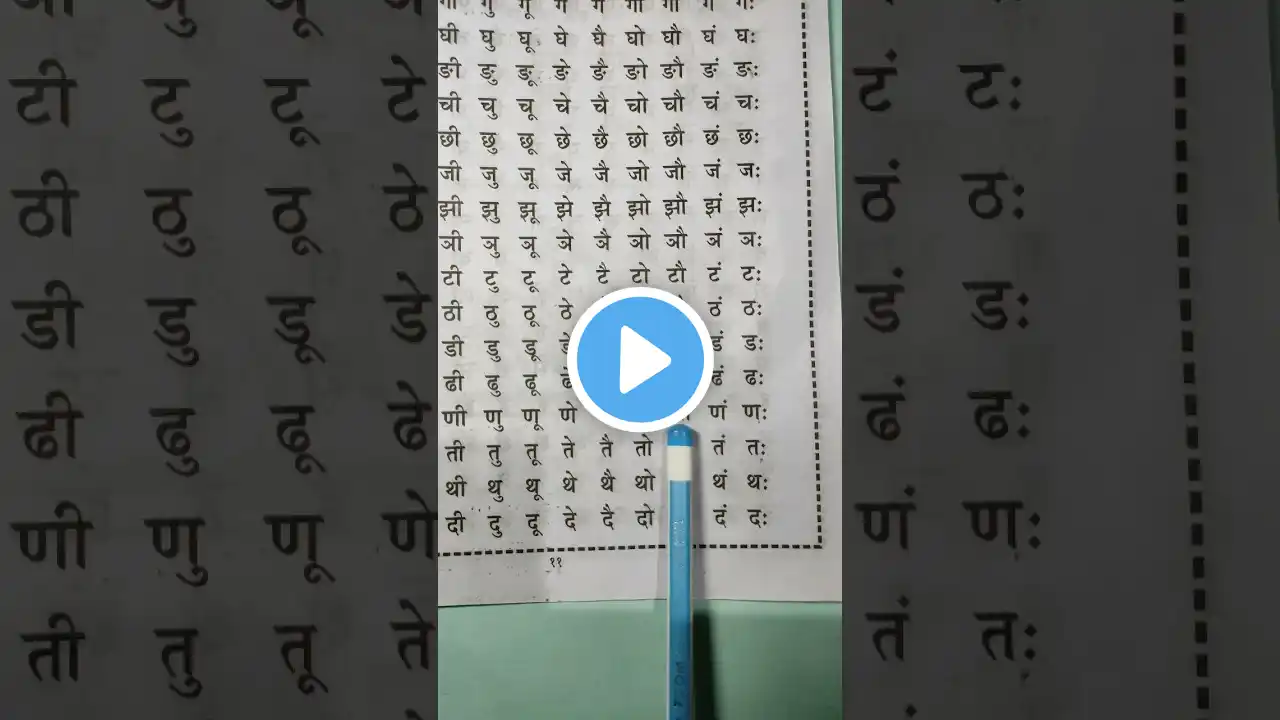 गी गु गू गे गै गो गौ गं गः
घी घु घू घे घै घो घौ घं घः
ङी ङु ङू ङे ङै ङो ङौ ङं ङः
ची चु चू चे चै चो चौ चं चः
छी छु छू छे छै छो छौ छं छः
जी जु जू जे जै जो जौ जं जः
झी झु झू झे झै झो झौ झं झः
ञी ञु ञू ञे ञै ञो ञौ ञं ञः
टी टु टू टे टै टो टौ टं टः
ठी ठु ठू ठे ठं ठः
डी डु डू डे डं डः
ढी ढु ढू ढं ढः
णी णु णू णे णं णः
ती तु तू ते तै तो तं तः
थी थु थू थे थै थो थं थः
दी दु दू दे दै दो दं दः
११